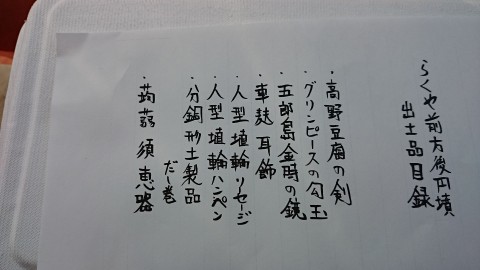 らくや前方後円墳
出土品目録
・高野豆腐の剣
・グリンピースの勾玉
・五郎島金時の鏡
・車麸 耳飾
・人型埴輪ソーセージ
・人型埴輪ハンペン
・分銅形土製品
だ巻
・蒟蒻 須恵器